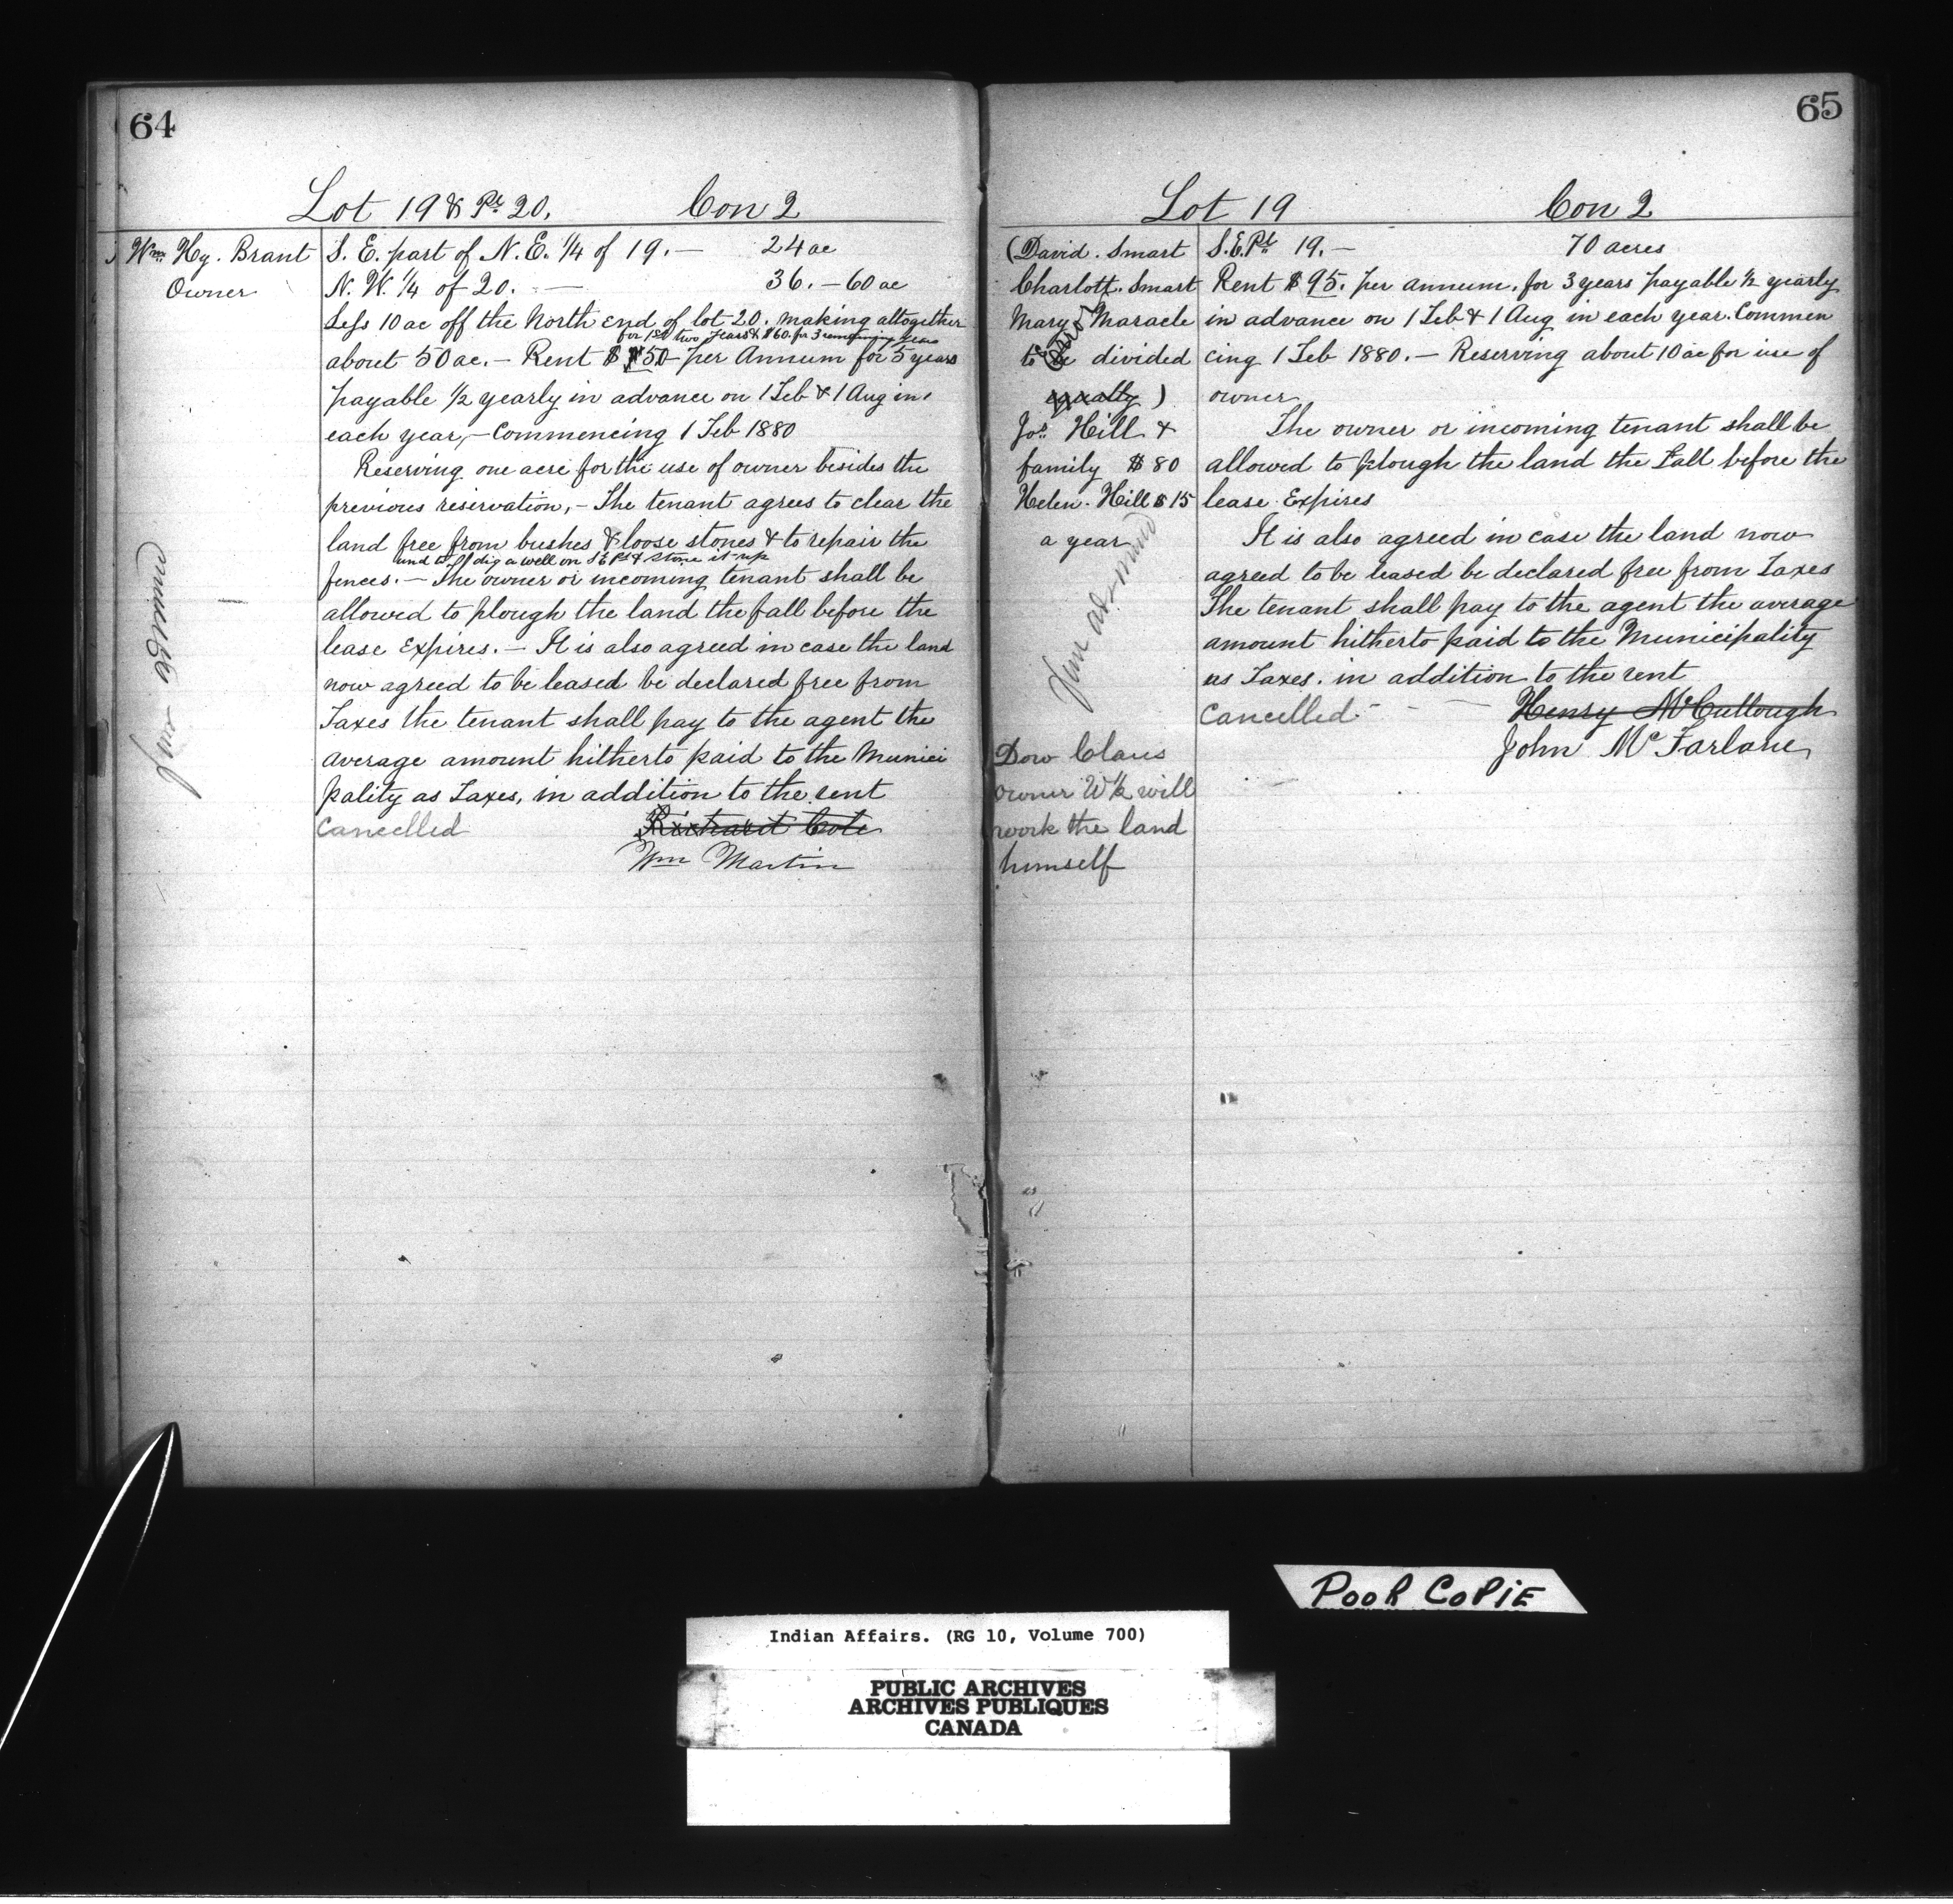 64
Lot 19 & Pt 20. Con 2
Wm Hy. Brant
Owner
S. E. part of N. E. 1/4 of 19. — 24 ac
N. W. 1/4 of 20. — 36. — 60 ac
Less 10 ac off the North end of lot 20. making altogether
for 1st two years & $60 for 3 remaining years
about 50 ac. — Rent $ 50 per Annum for 5 years
payable 1/2 yearly in advance on 1 Feb & 1 Aug in
each year, — Commencing 1 Feb 1880
Reserving one acre for the use of owner besides the
previous reservation, — The tenant agrees to clear the
land free from bushes & loose stones & to repair the
and to dig a well on S E Pt & stone it up
fences. — The owner or incoming tenant shall be
allowed to plough the land the fall before the
lease Expires. — It is also agreed in case the land
now agreed to be leased be declared free from
Taxes the tenant shall pay to the agent the
average amount hitherto paid to the Munici
pality as Taxes, in addition to the rent
Cancelled Richard Cole
Wm Martin
65
Lot 19 Con 2
(David. Smart
Charlott. Smart
Mary Maracle
to be divided
equally)
Jos. Hill &
family $80
Helen. Hill $15
a year
Dow Claus
owner W 1/2 will
work the land
himself
S.E. Pt 19. — 70 acres
Rent $95. per annum, for 3 years payable 1/2 yearly
in advance on 1 Feb & 1 Aug in each year. Commen
cing 1 Feb 1880. — Reserving about 10 ac for use of
owner
The owner or incoming tenant shall be
allowed to plough the land the Fall before the
lease Expires
It is also agreed in case the land now
agreed to be leased be declared free from Taxes
The tenant shall pay to the agent the average
amount hitherto paid to the Municipality
as Taxes. in addition to the rent
Cancelled — Henry McCullough
John McFarlane
POOR COPiE
Indian Affairs. (RG 10, Volume 700)
PUBLIC ARCHIVES
ARCHIVES PUBLIQUES
CANADA